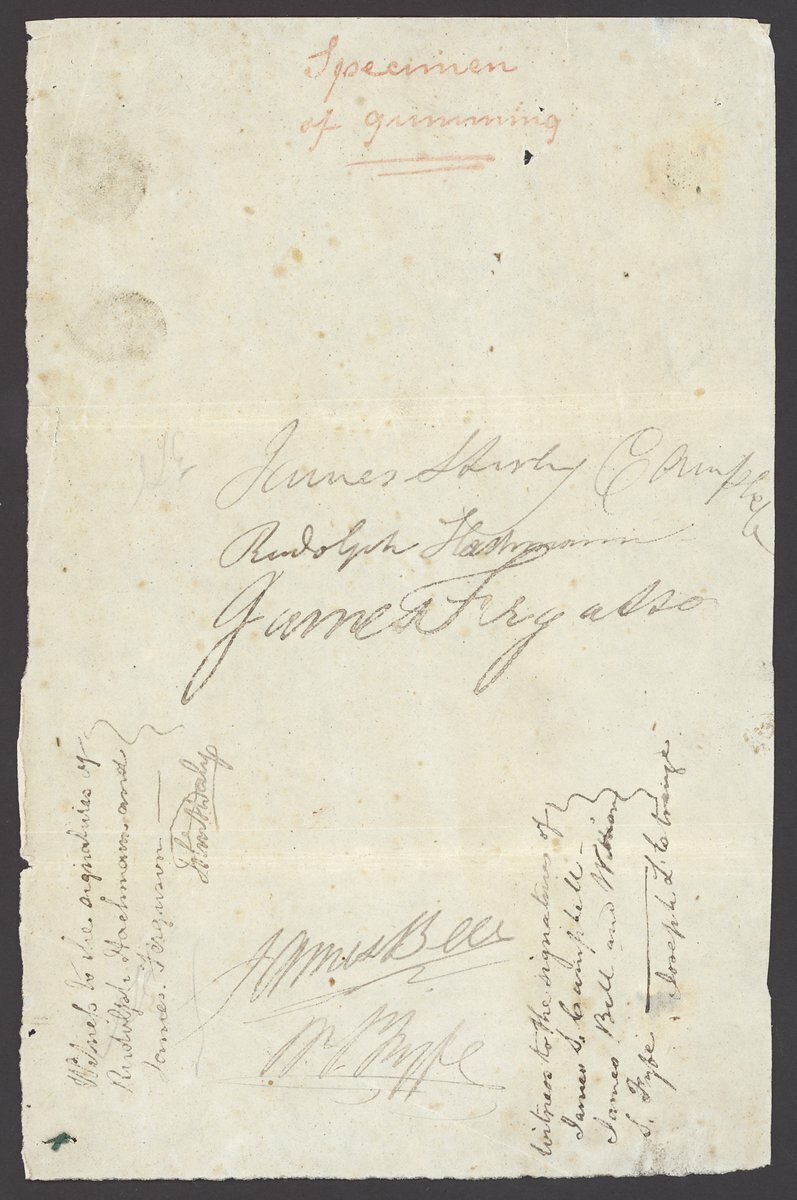 Specimen
of gumming
James Stirling Campbell
Rudolph Hachmann
James Fergusso
Witness to the signatures of
Rudolph Hachmann and
James Ferguson
James Bell
W. S. Fyfe
Witness to the signatures of
James S. Campbell —
James Bell and William
S. Fyfe — Joseph L'Estrange